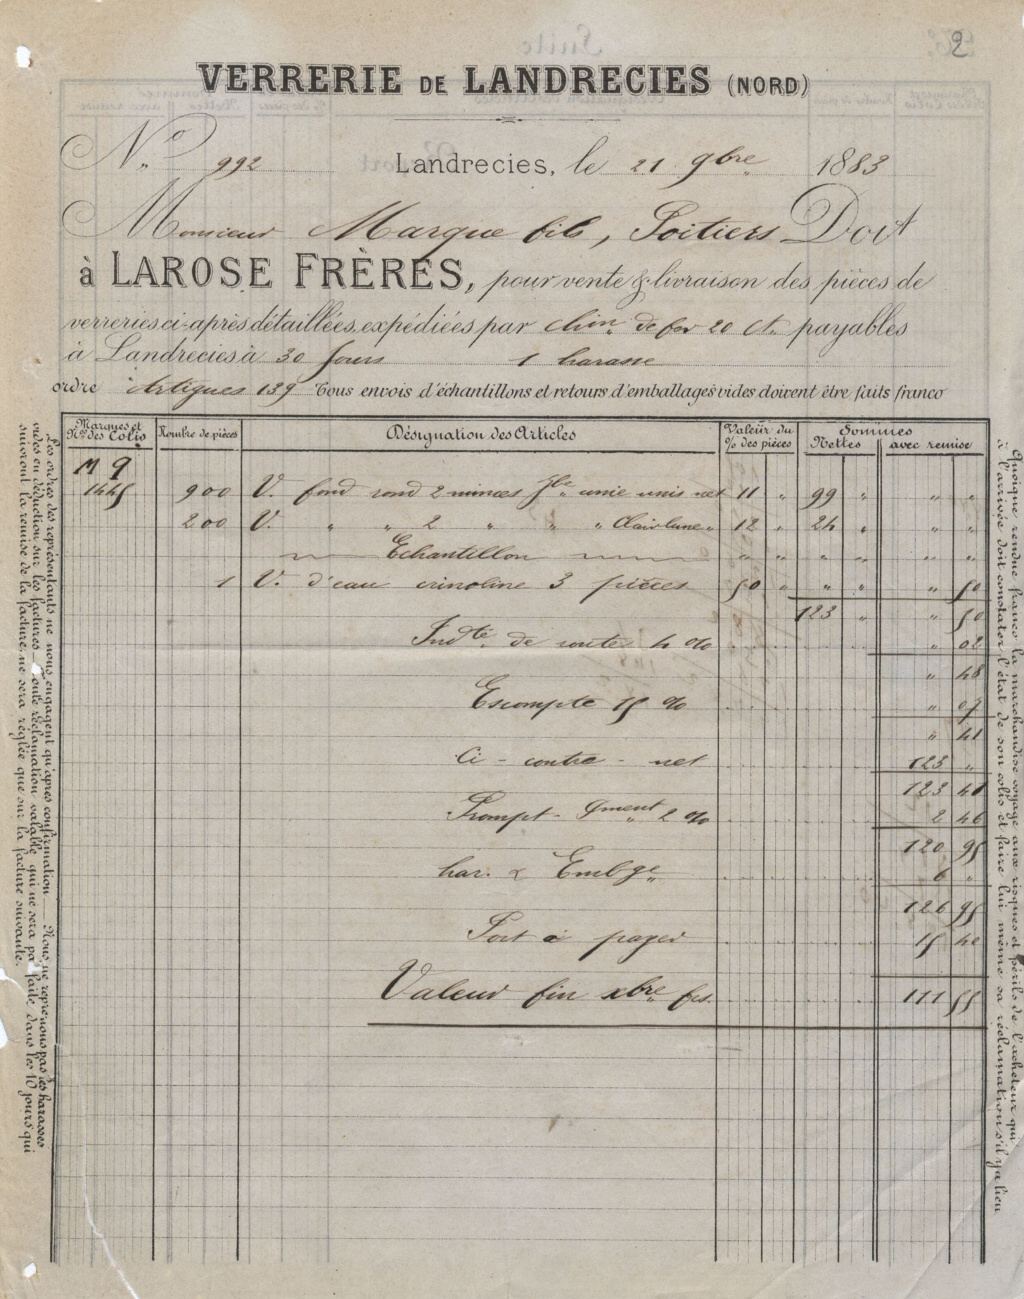 2
VERRERIE DE LANDRECIES (NORD)
N° 992 Landrecies, le 21 9bre 1883
Monsieur Marque fils, Poitiers Doit
à LAROSE FRÈRES, pour vente & livraison des pièces de
verreries ci-après détaillées, expédiées par chin de fer 20 Ct. payables
à Landrecies à 30 jours 1 harasse
ordre Artigues 139 Tous envois d'échantillons et retours d'emballages vides doivent être faits franco
Marques et Nos des Colis Nombre de pièces Désignation des Articles Valeur du % des pièces Sommes Nettes avec remise
M 9
1445 900 V. fond rond 2 minces Jle unie unis net 11 " 99 " " "
200 V. " " 2 " " " Clair lune " 12 " 24 " " "
Echantillon " " " " " "
1 V. d'eau crinoline 3 pièces 50 " " " " 50
123 " " 50
Indté de route 4 % " 02
" 48
Escompte 15 % " 07
" 41
Ci - contre - net 123 "
123 41
Prompt - Pment 2 % 2 46
120 95
har. & Embge 6 "
126 95
Port à payer 15 40
Valeur fin xbre frs 111 55
Les ordres des représentants ne nous engagent qu'après confirmation — Nous ne reprenons pas les harasses
vides en déduction sur les factures — Toute réclamation valable qui ne sera pas faite, dans les 10 jours qui
suivront la remise de la facture, ne sera réglée que sur la facture suivante.
Quoique rendue franco la marchandise voyage aux risques et périls de l'acheteur qui
à l'arrivée doit constater l'état de son colis et faire lui même sa réclamation s'il y a lieu